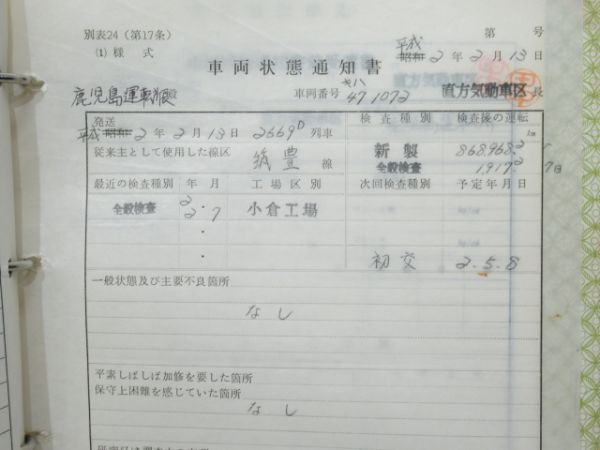 別表24（第17条）
第 号
(1) 様 式
平成 昭和 2年 2月 13日
車両状態通知書
鹿児島運転所殿
車両番号 キハ 47 1072
直方気動車区長
発送
検査種別 検査後の運転
平成 昭和 2年 2月 13日 2669D 列車
新製 868,968.2 km
従来主として使用した線区 筑豊 線
全般検査 1,917.2 7日
最近の検査種別 年 月 工場区別 次回検査種別 予定年月日
全般検査 2・7 小倉工場
・
・ 初交 2.5.8
一般状態及び主要不良箇所
なし
平素しばしば加修を要した箇所
保守上困難を感じていた箇所
なし